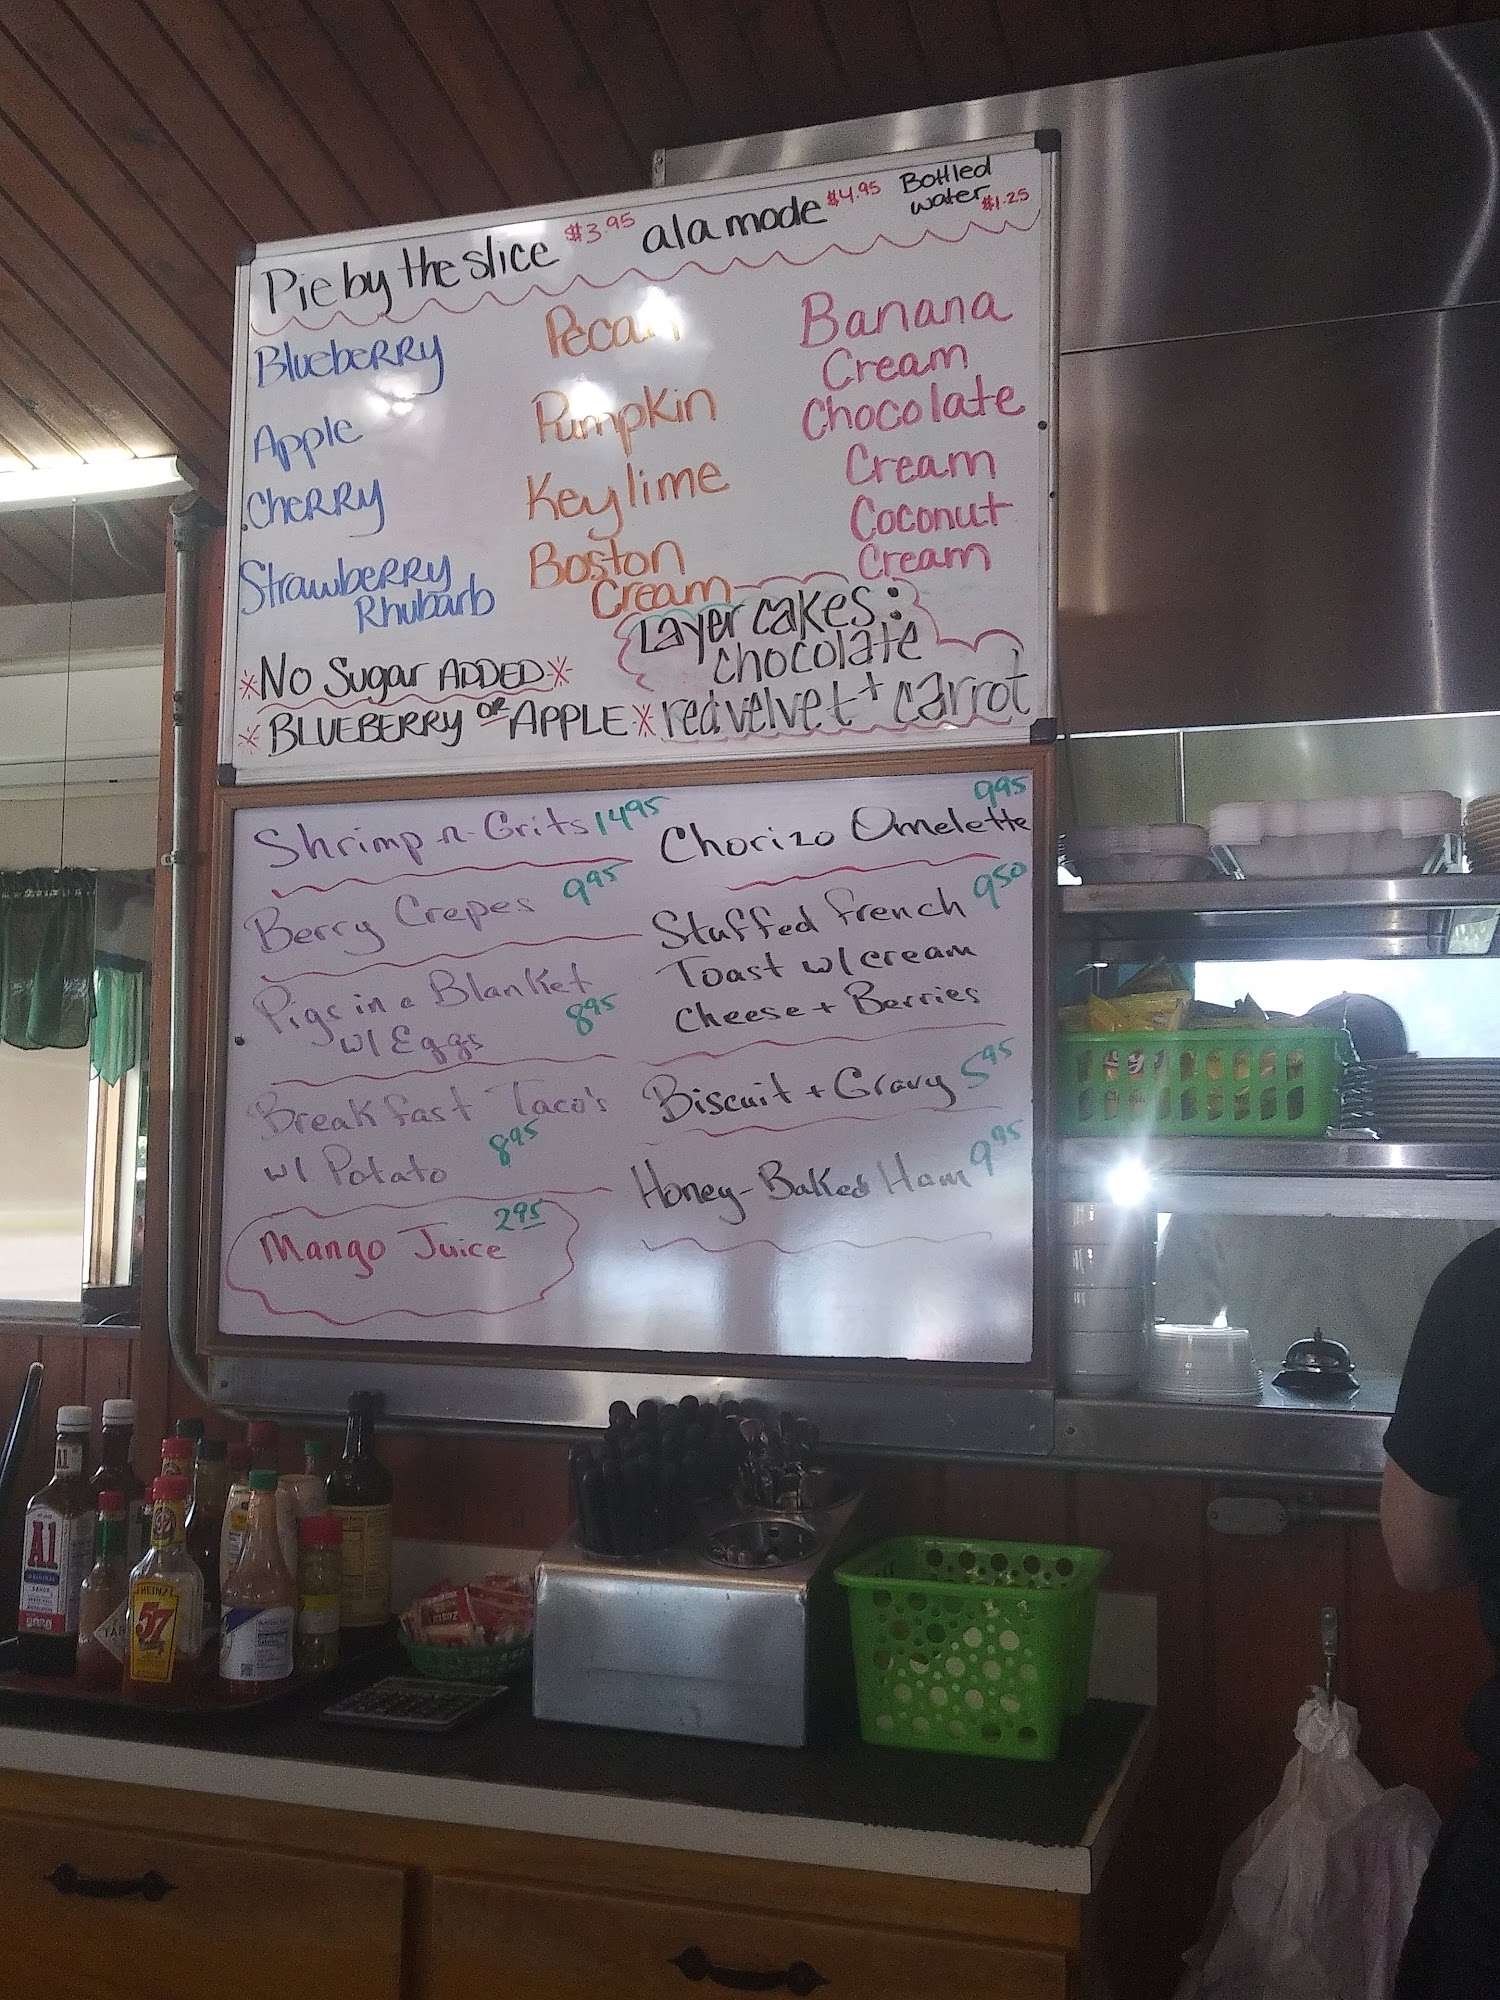 Pie by the slice $3.95 ala mode $4.95 Bottled water $1.25
Blueberry
Apple
Cherry
Strawberry
Rhubarb
Pecan
Pumpkin
Key lime
Boston
Cream
Banana
Cream
Chocolate
Cream
Coconut
Cream
*No Sugar ADDED*
*BLUEBERRY OR APPLE*
Layer cakes:
chocolate
red velvet + carrot
Shrimp-n-Grits 14.95
Berry Crepes 9.95
Pigs in a Blanket
w/ Eggs 8.95
Breakfast Taco's
w/ Potato 8.95
Mango Juice 2.95
Chorizo Omelette 9.95
Stuffed French 9.50
Toast w/ cream
cheese + Berries
Biscuit + Gravy 5.95
Honey-Baked Ham 9.95
A1
A1
HEINZ
57